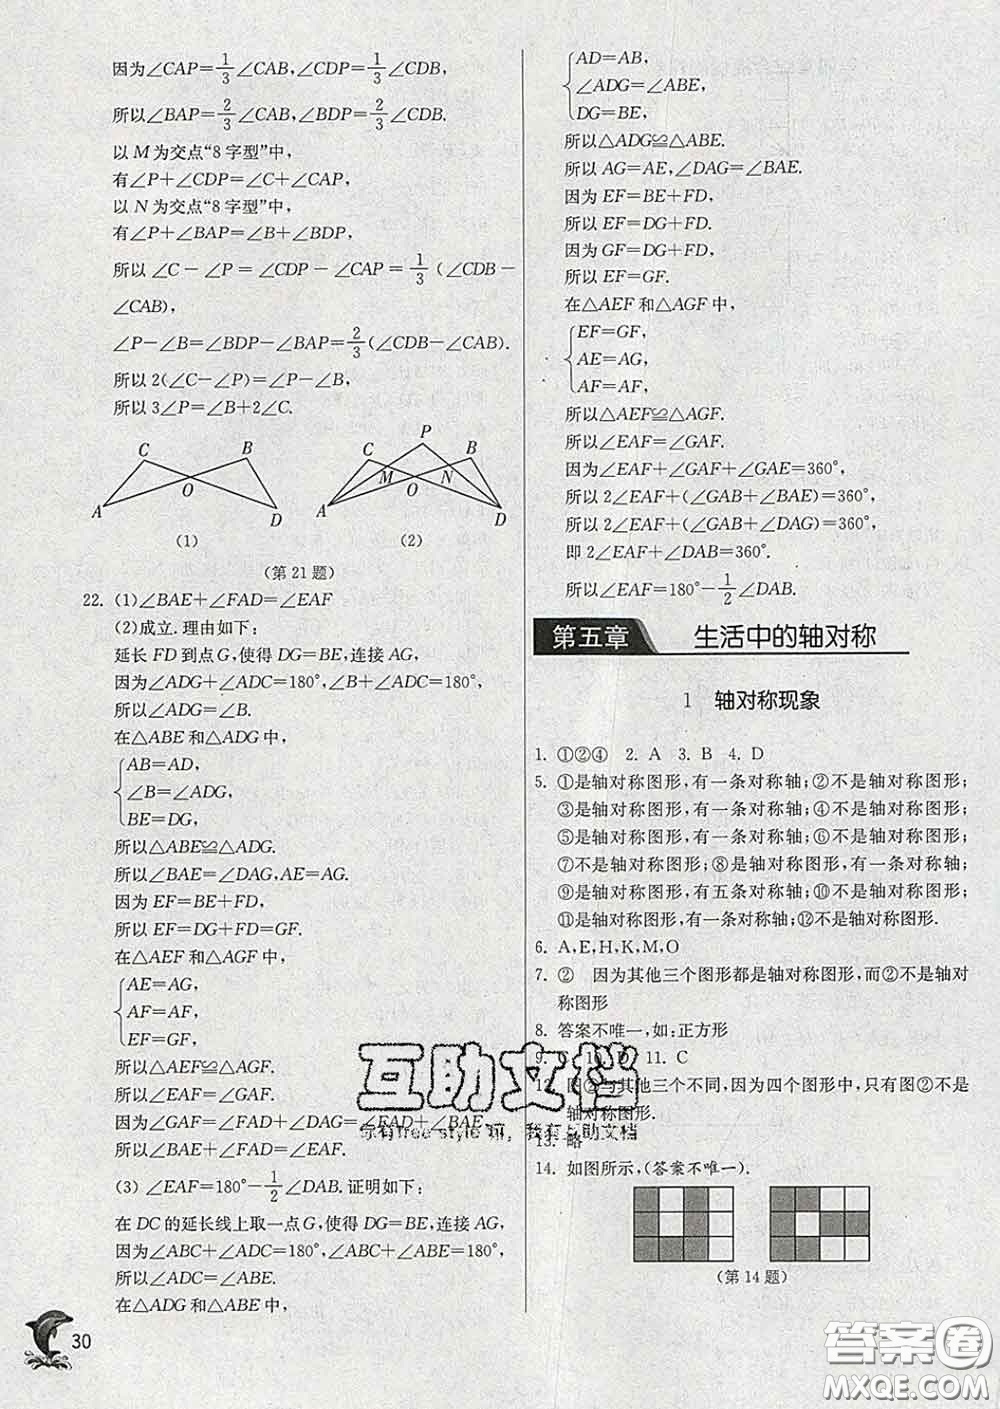 因为∠CAP=1/3∠CAB,∠CDP=1/3∠CDB,
所以∠BAP=2/3∠CAB,∠BDP=2/3∠CDB.
以M为交点“8字型”中,
有∠P+∠CDP=∠C+∠CAP,
以N为交点“8字型”中,
有∠P+∠BAP=∠B+∠BDP,
所以∠C-∠P=∠CDP-∠CAP=1/3(∠CDB-
∠CAB),
∠P-∠B=∠BDP-∠BAP=2/3(∠CDB-∠CAB).
所以2(∠C-∠P)=∠P-∠B,
所以3∠P=∠B+2∠C.
C B O A D
P C B M N O A D
(1) (2)
(第21题)
22. (1)∠BAE+∠FAD=∠EAF
(2)成立.理由如下:
延长FD到点G,使得DG=BE,连接AG,
因为∠ADG+∠ADC=180°,∠B+∠ADC=180°,
所以∠ADG=∠B.
在△ABE和△ADG中,
AB=AD,
∠B=∠ADG,
BE=DG,
所以△ABE≌△ADG.
所以∠BAE=∠DAG,AE=AG.
因为EF=BE+FD,
所以EF=DG+FD=GF.
在△AEF和△AGF中,
AE=AG,
AF=AF,
EF=GF,
所以△AEF≌△AGF.
所以∠EAF=∠GAF.
因为∠GAF=∠FAD+∠DAG=∠FAD+∠BAE,
所以∠BAE+∠FAD=∠EAF.
(3)∠EAF=180°-1/2∠DAB.证明如下:
在DC的延长线上取一点G,使得DG=BE,连接AG,
因为∠ABC+∠ADC=180°,∠ABC+∠ABE=180°,
所以∠ADC=∠ABE.
在△ADG和△ABE中,
30
AD=AB,
∠ADG=∠ABE,
DG=BE,
所以△ADG≌△ABE.
所以AG=AE,∠DAG=∠BAE.
因为EF=BE+FD,
所以EF=DG+FD.
因为GF=DG+FD,
所以EF=GF.
在△AEF和△AGF中,
EF=GF,
AE=AG,
AF=AF,
所以△AEF≌△AGF.
所以∠EAF=∠GAF.
因为∠EAF+∠GAF+∠GAE=360°,
所以2∠EAF+(∠GAB+∠BAE)=360°,
所以2∠EAF+(∠GAB+∠DAG)=360°,
即2∠EAF+∠DAB=360°.
所以∠EAF=180°-1/2∠DAB.
第五章 生活中的轴对称
1 轴对称现象
1. ①②④ 2. A 3. B 4. D
5. ①是轴对称图形,有一条对称轴;②不是轴对称图形;
③是轴对称图形,有一条对称轴;④不是轴对称图形;
⑤是轴对称图形,有一条对称轴;⑥不是轴对称图形;
⑦不是轴对称图形;⑧是轴对称图形,有一条对称轴;
⑨是轴对称图形,有五条对称轴;⑩不是轴对称图形;
⑪是轴对称图形,有一条对称轴;⑫不是轴对称图形.
6. A,E,H,K,M,O
7. ② 因为其他三个图形都是轴对称图形,而②不是轴对
称图形
8. 答案不唯一,如:正方形
9. C 10. D 11. C
12. 图②与其他三个不同,因为四个图形中,只有图②不是
轴对称图形.
13. 略
14. 如图所示,(答案不唯一).
(第14题)
互助文档
你有free style 嘛,我有互助文档
答案圈
MXQE.COM